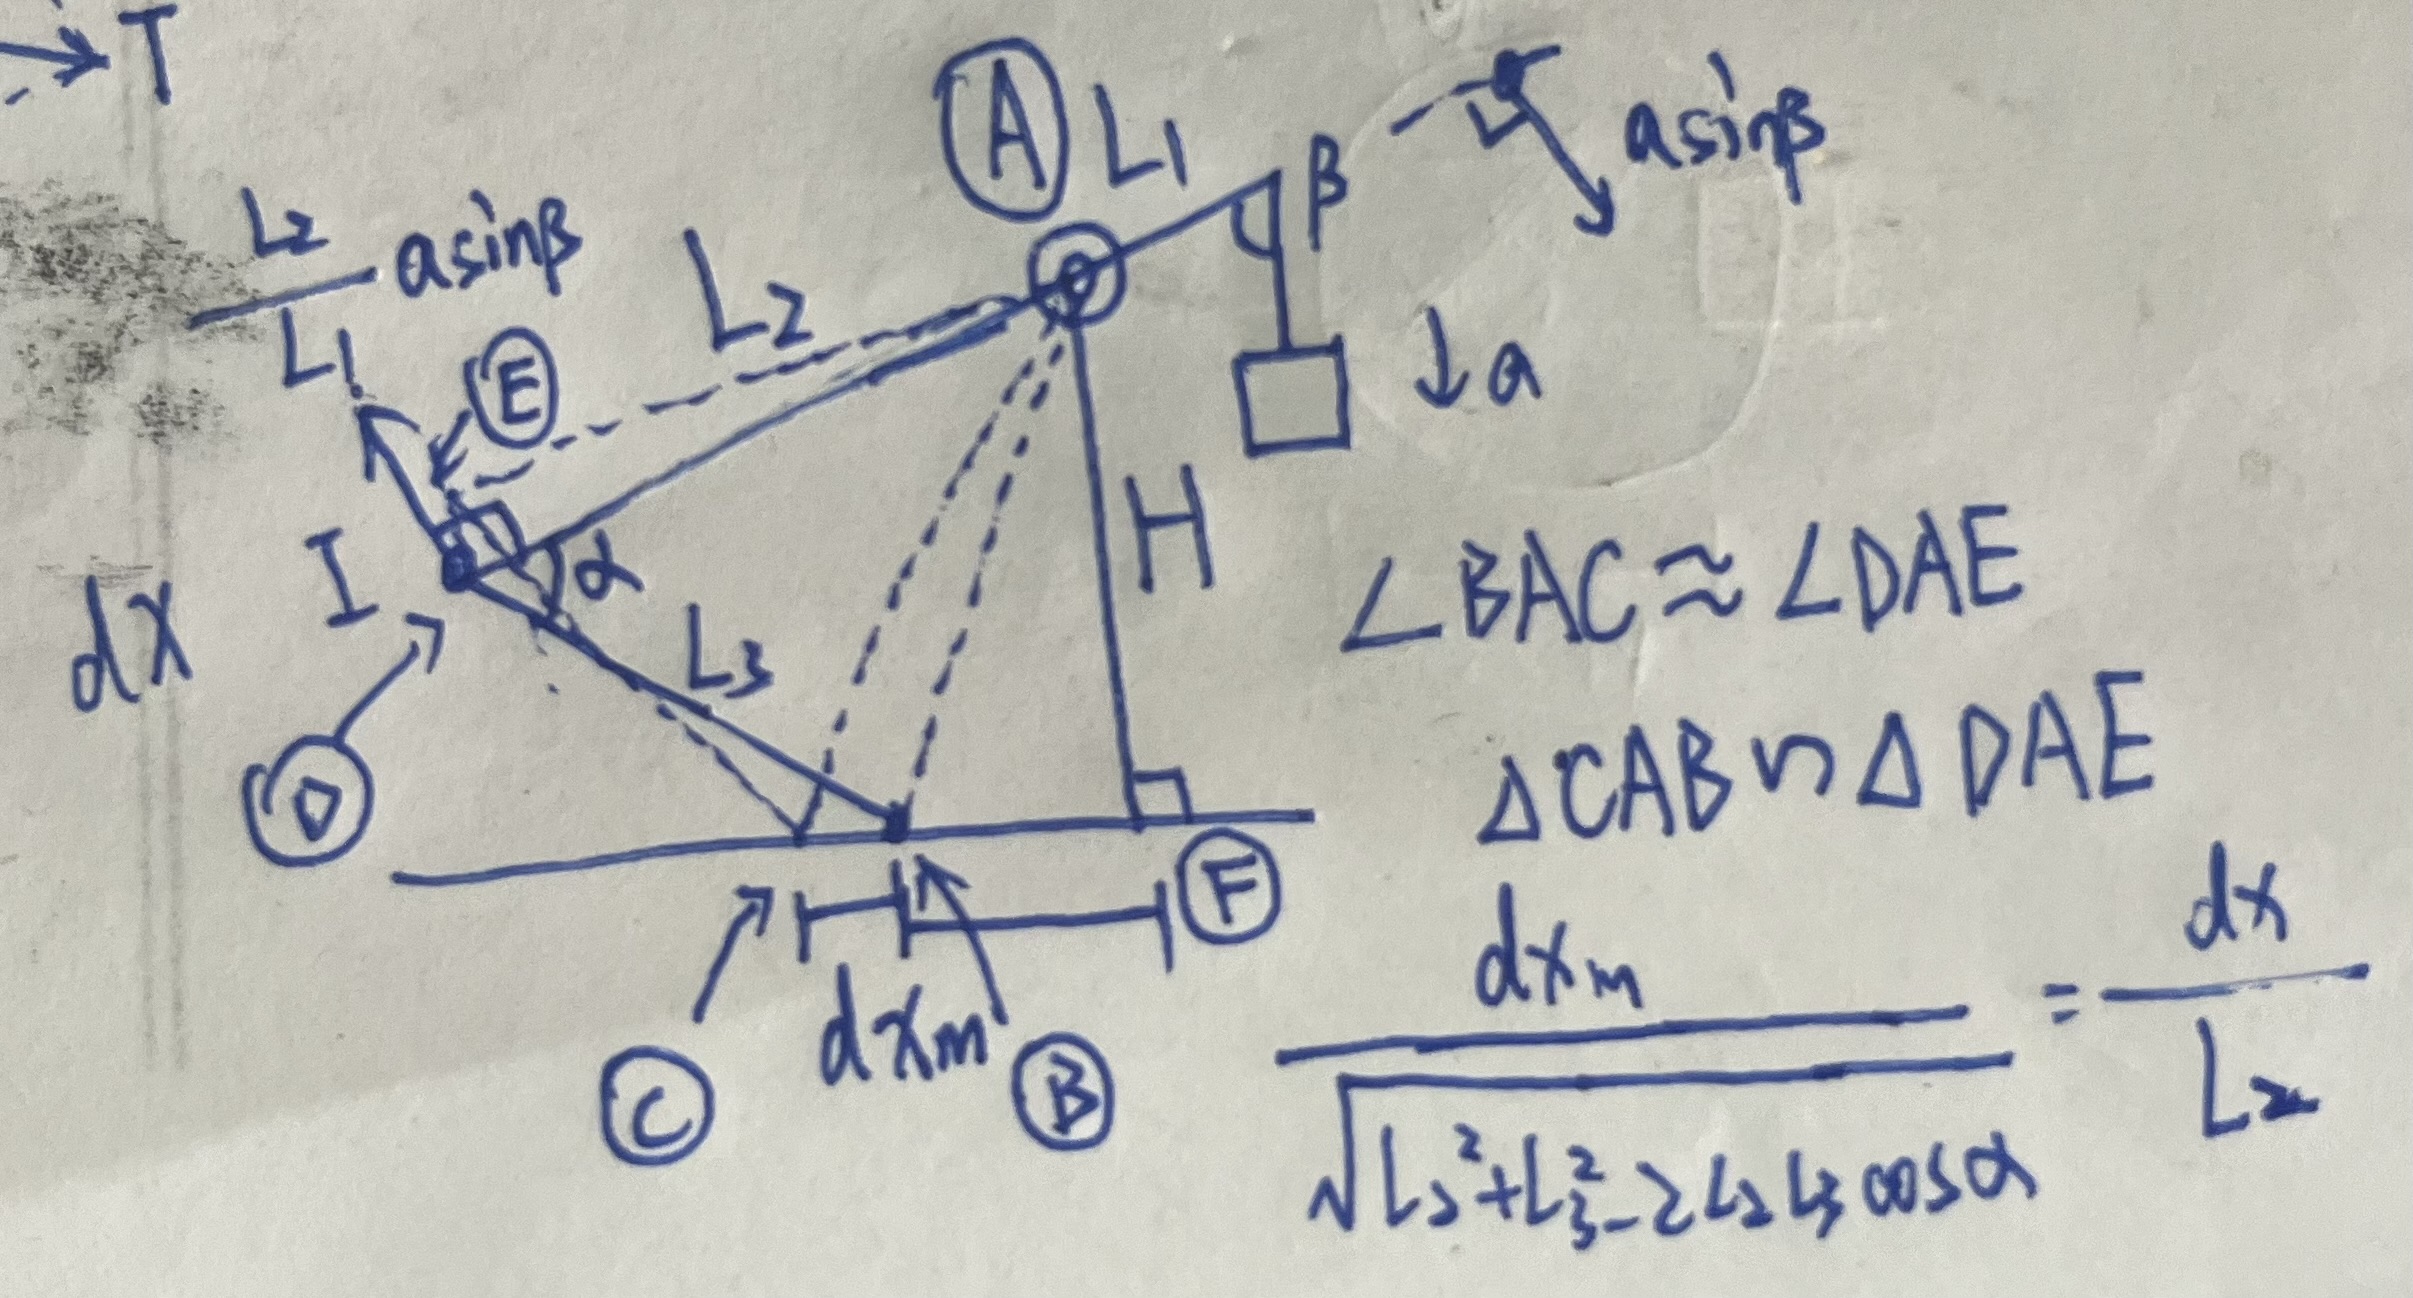 T
A
L1
β
asinβ
L2/L1 asinβ
L2
E
↓a
H
I
α
dx
L3
∠BAC≈∠DAE
D
△CAB∽△DAE
F
C
dxm
B
dxm/√(L2²+L3²-2L2L3cosα) = dx/L2